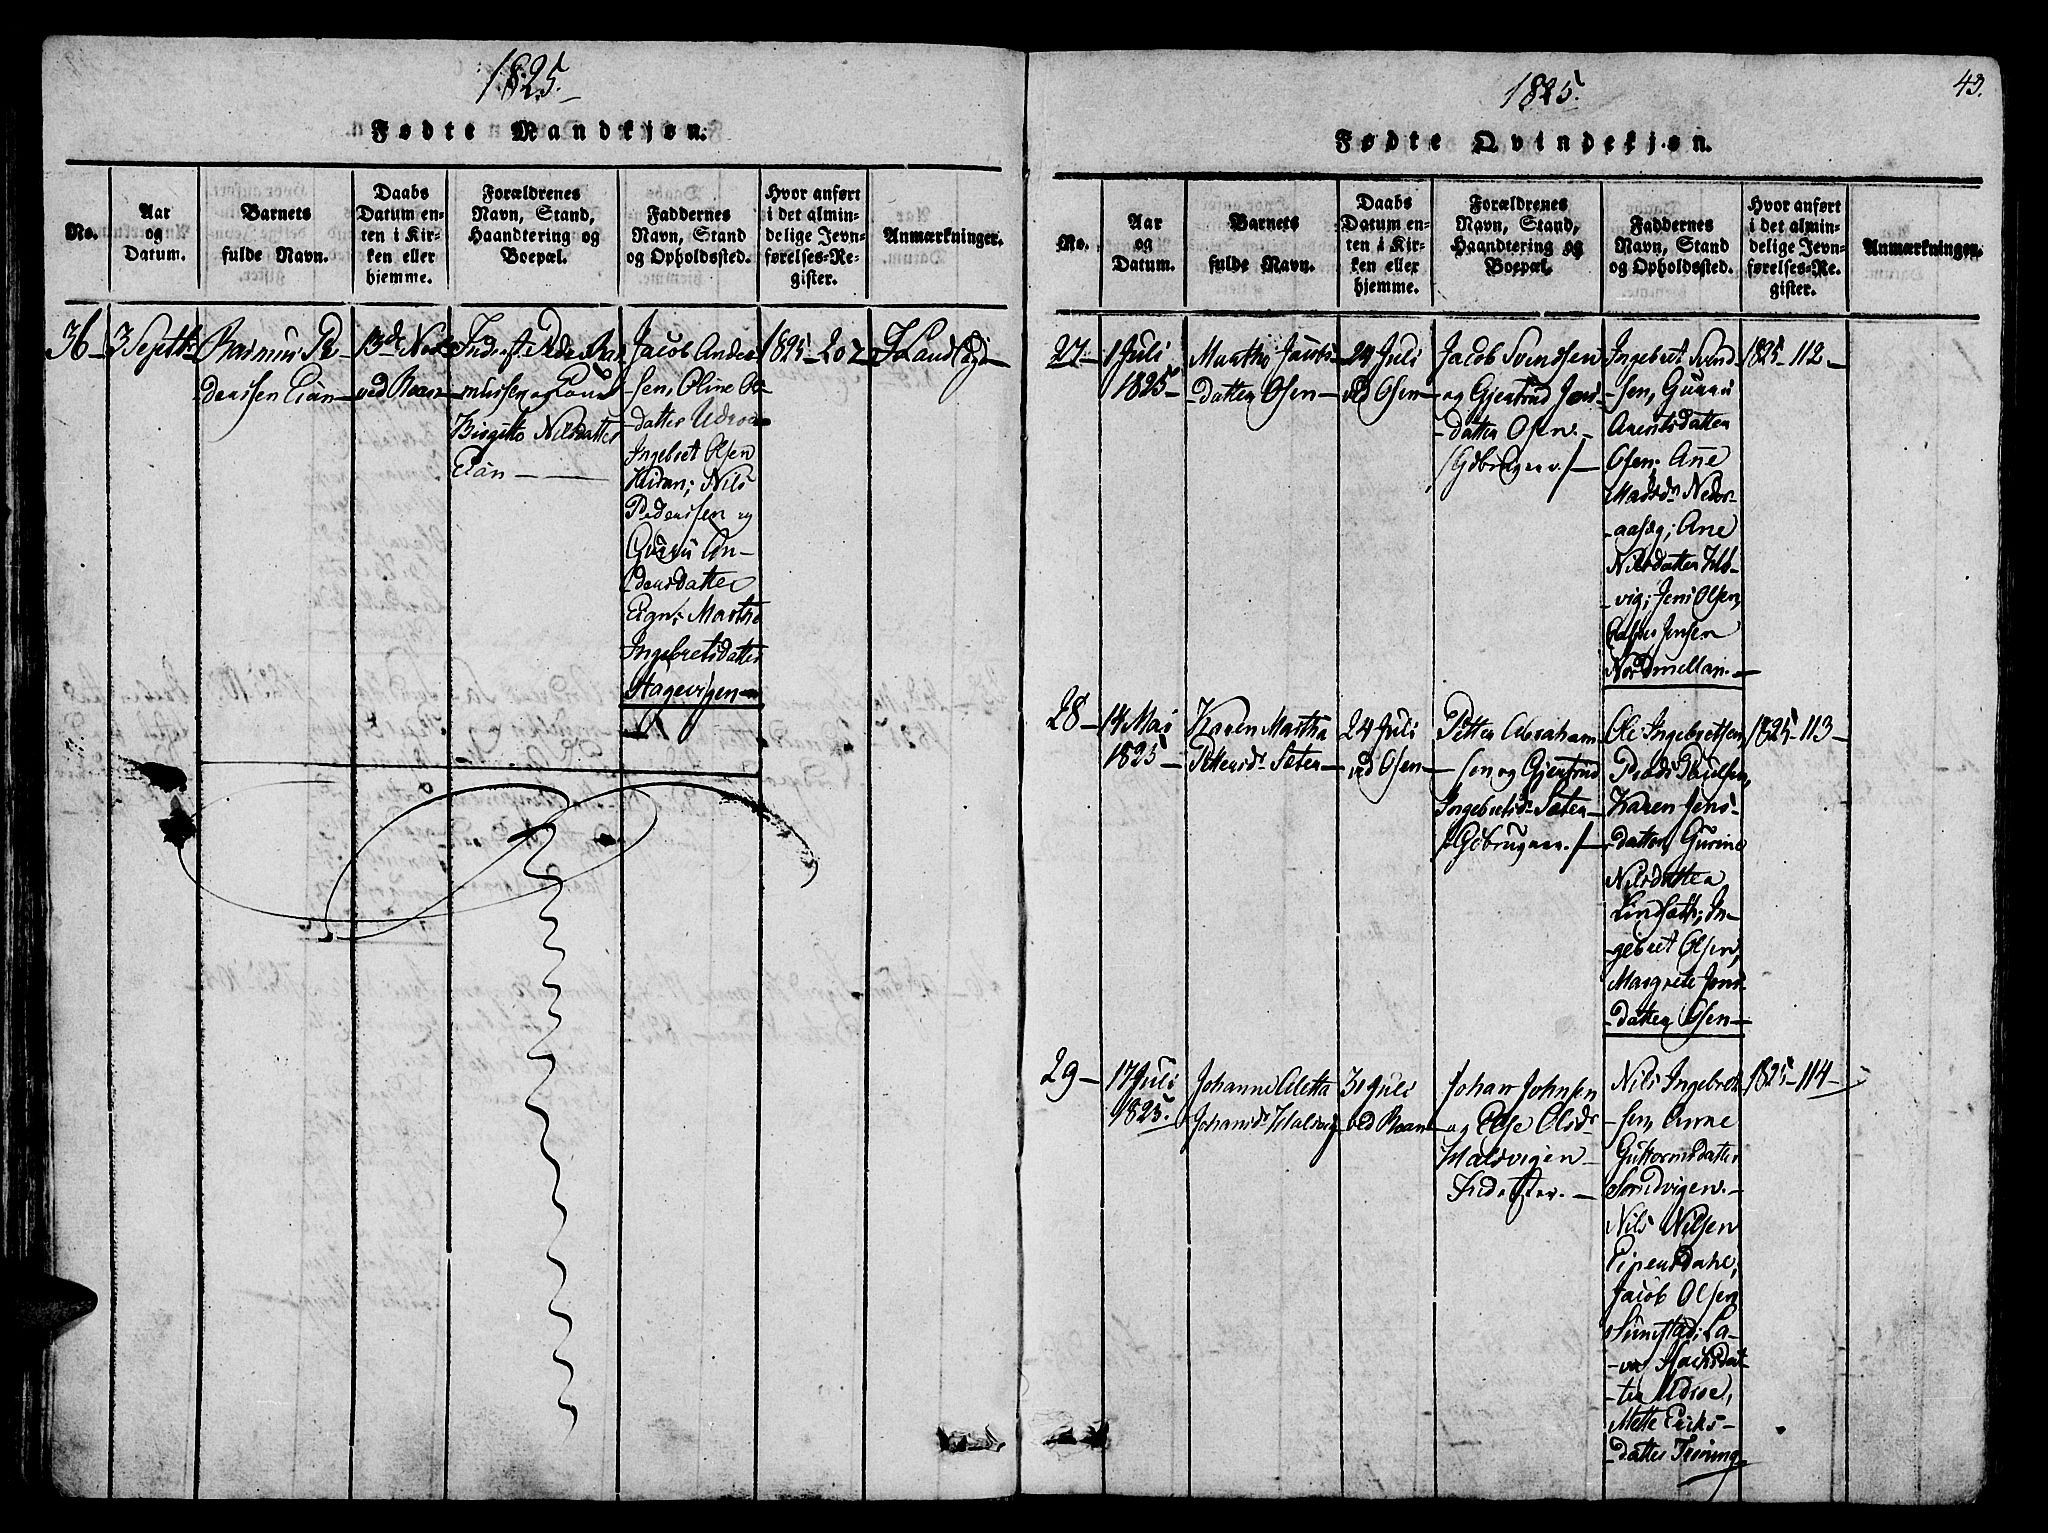 1825.
Fødte Mandkjøn.
No.
Aar
og
Datum.
Barnets
fulde Navn.
Daabs
Datum en-
ten i Kir-
ken eller
hjemme.
Forældrenes
Navn, Stand,
Haandtering og
Boepæl.
Faddernes
Navn, Stand
og Opholdssted.
Hvor anført
i det almin-
delige Jevn-
førelses-Re-
gister.
Anmærkninger.
36 3 Septb
Rasmus Pe-
dersen Eian
13de
ved Roan
Inderst Peder Ras
mussen og
Birgitte Nilsdatter
Eian
Jacob Ander
sen, Oline
datter
Ingebret Olsen
Nils
Pedersen og
Guru An-
dersdatter
Eign; Marthe
Ingebretsdatter
Hagevigen
1825 - 202
1825.
43.
Fødte Qvindekjøn.
No.
Aar
og
Datum.
Barnets
fulde Navn.
Daabs
Datum en-
ten i Kir-
ken eller
hjemme.
Forældrenes
Navn, Stand,
Haandtering og
Boepæl.
Faddernes
Navn, Stand
og Opholdssted.
Hvor anført
i det almin-
delige Jevn-
førelses-Re-
gister.
Anmærkninger.
27 1 Juli
1825
Martha Jacobs
datter Osen
24 Juli
ved Osen
Jacob Svendsen
og Gjertrud Jens
datter Osen.
/Gbruger./
Ingebret Svend
sen, Guru
Arentsdatter
Osen; Ane
Madsdr
Ane
Nilsdatter Hb
vig; Jens Olsen,
Jensen
Nordmellan.
1825 - 112
28 14 Mai
1825
Karen Martha
Pettersdr Sæter
24 Juli
ved Osen
Petter Abraham
sen og Gjertrud
Ingebretsdr Sæter
/Gbruger./
Ole Ingebretsen,
Karen Jens
datter, Gurine
Nilsdatter
In-
gebret Olsen,
Margrete Jens
datter Osen
1825 - 113
29 17 Juli
1825.
Johanna Aletta
Johansdr Halsvig
31 Juli
ved Roan
Johan Johnsen
og Else Olsdr
Halsvigen
Inderster.
Nils Ingebret
sen, Anne
Guttormsdatter
Sandvigen.
Nils Nilsen
Jacob Olsen
Sumstad; La-
datter
Mette Eriks-
datter
1825 - 114